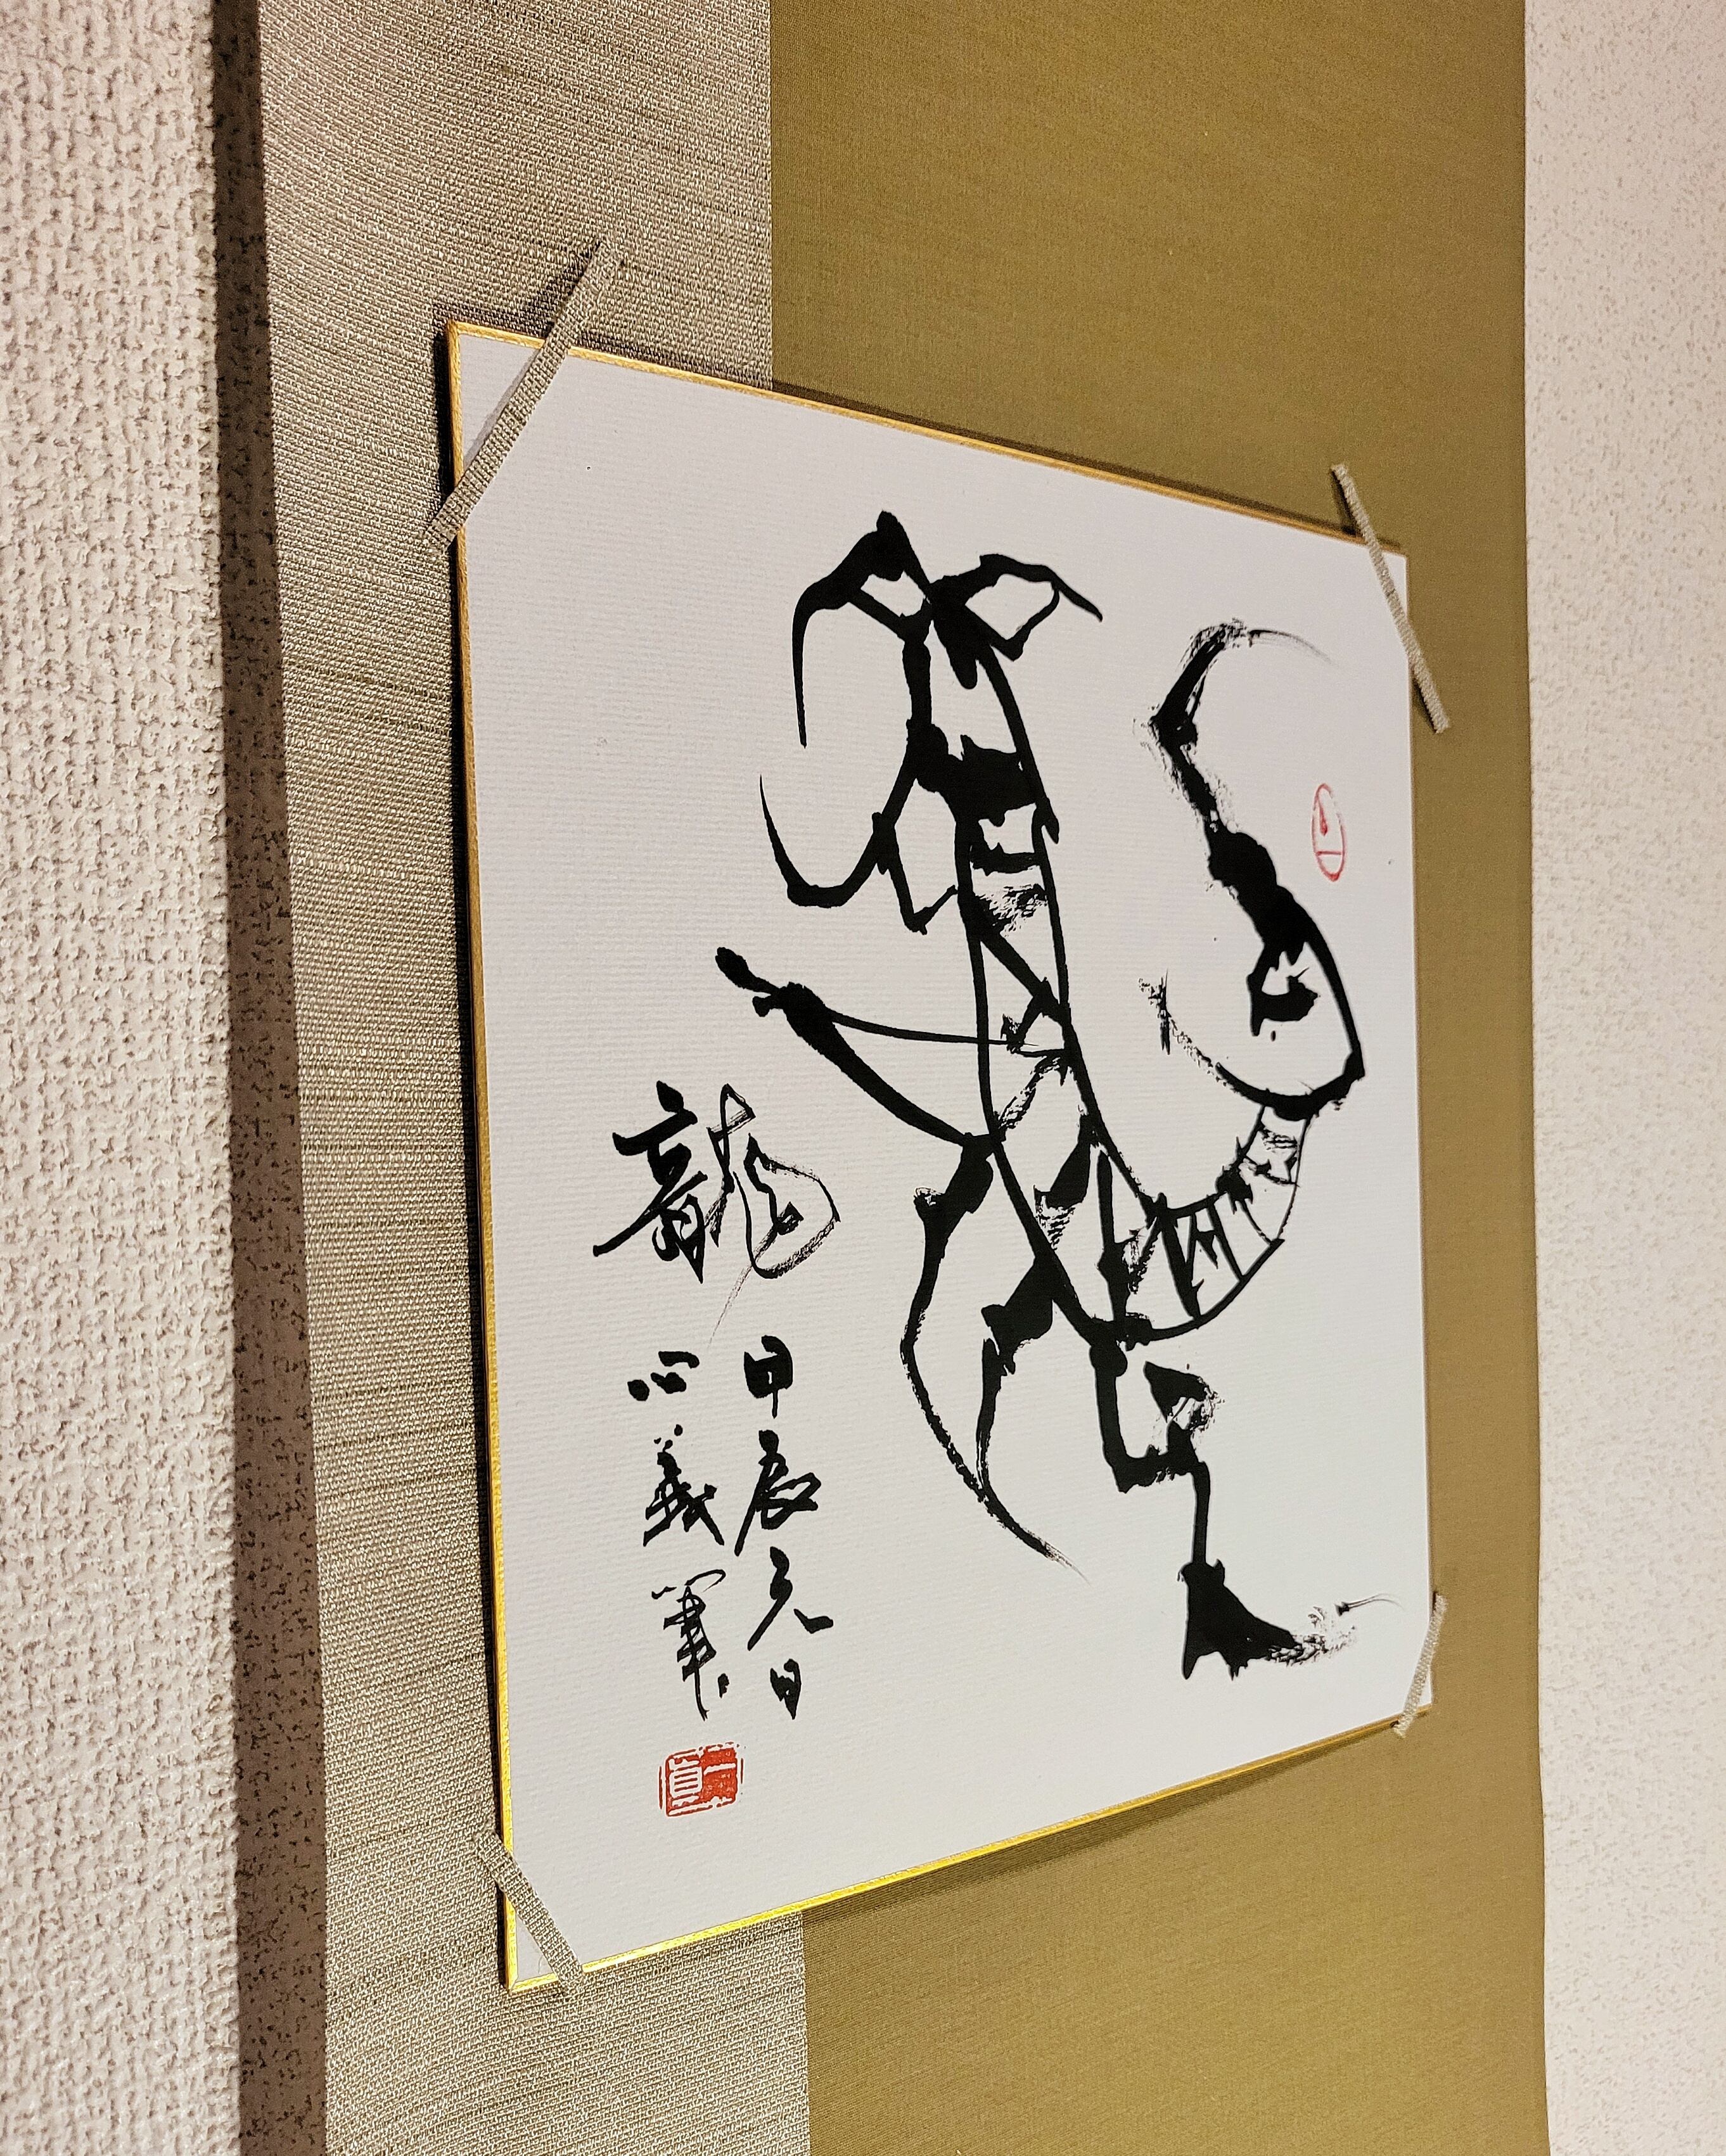 龍
甲辰元日
心義筆